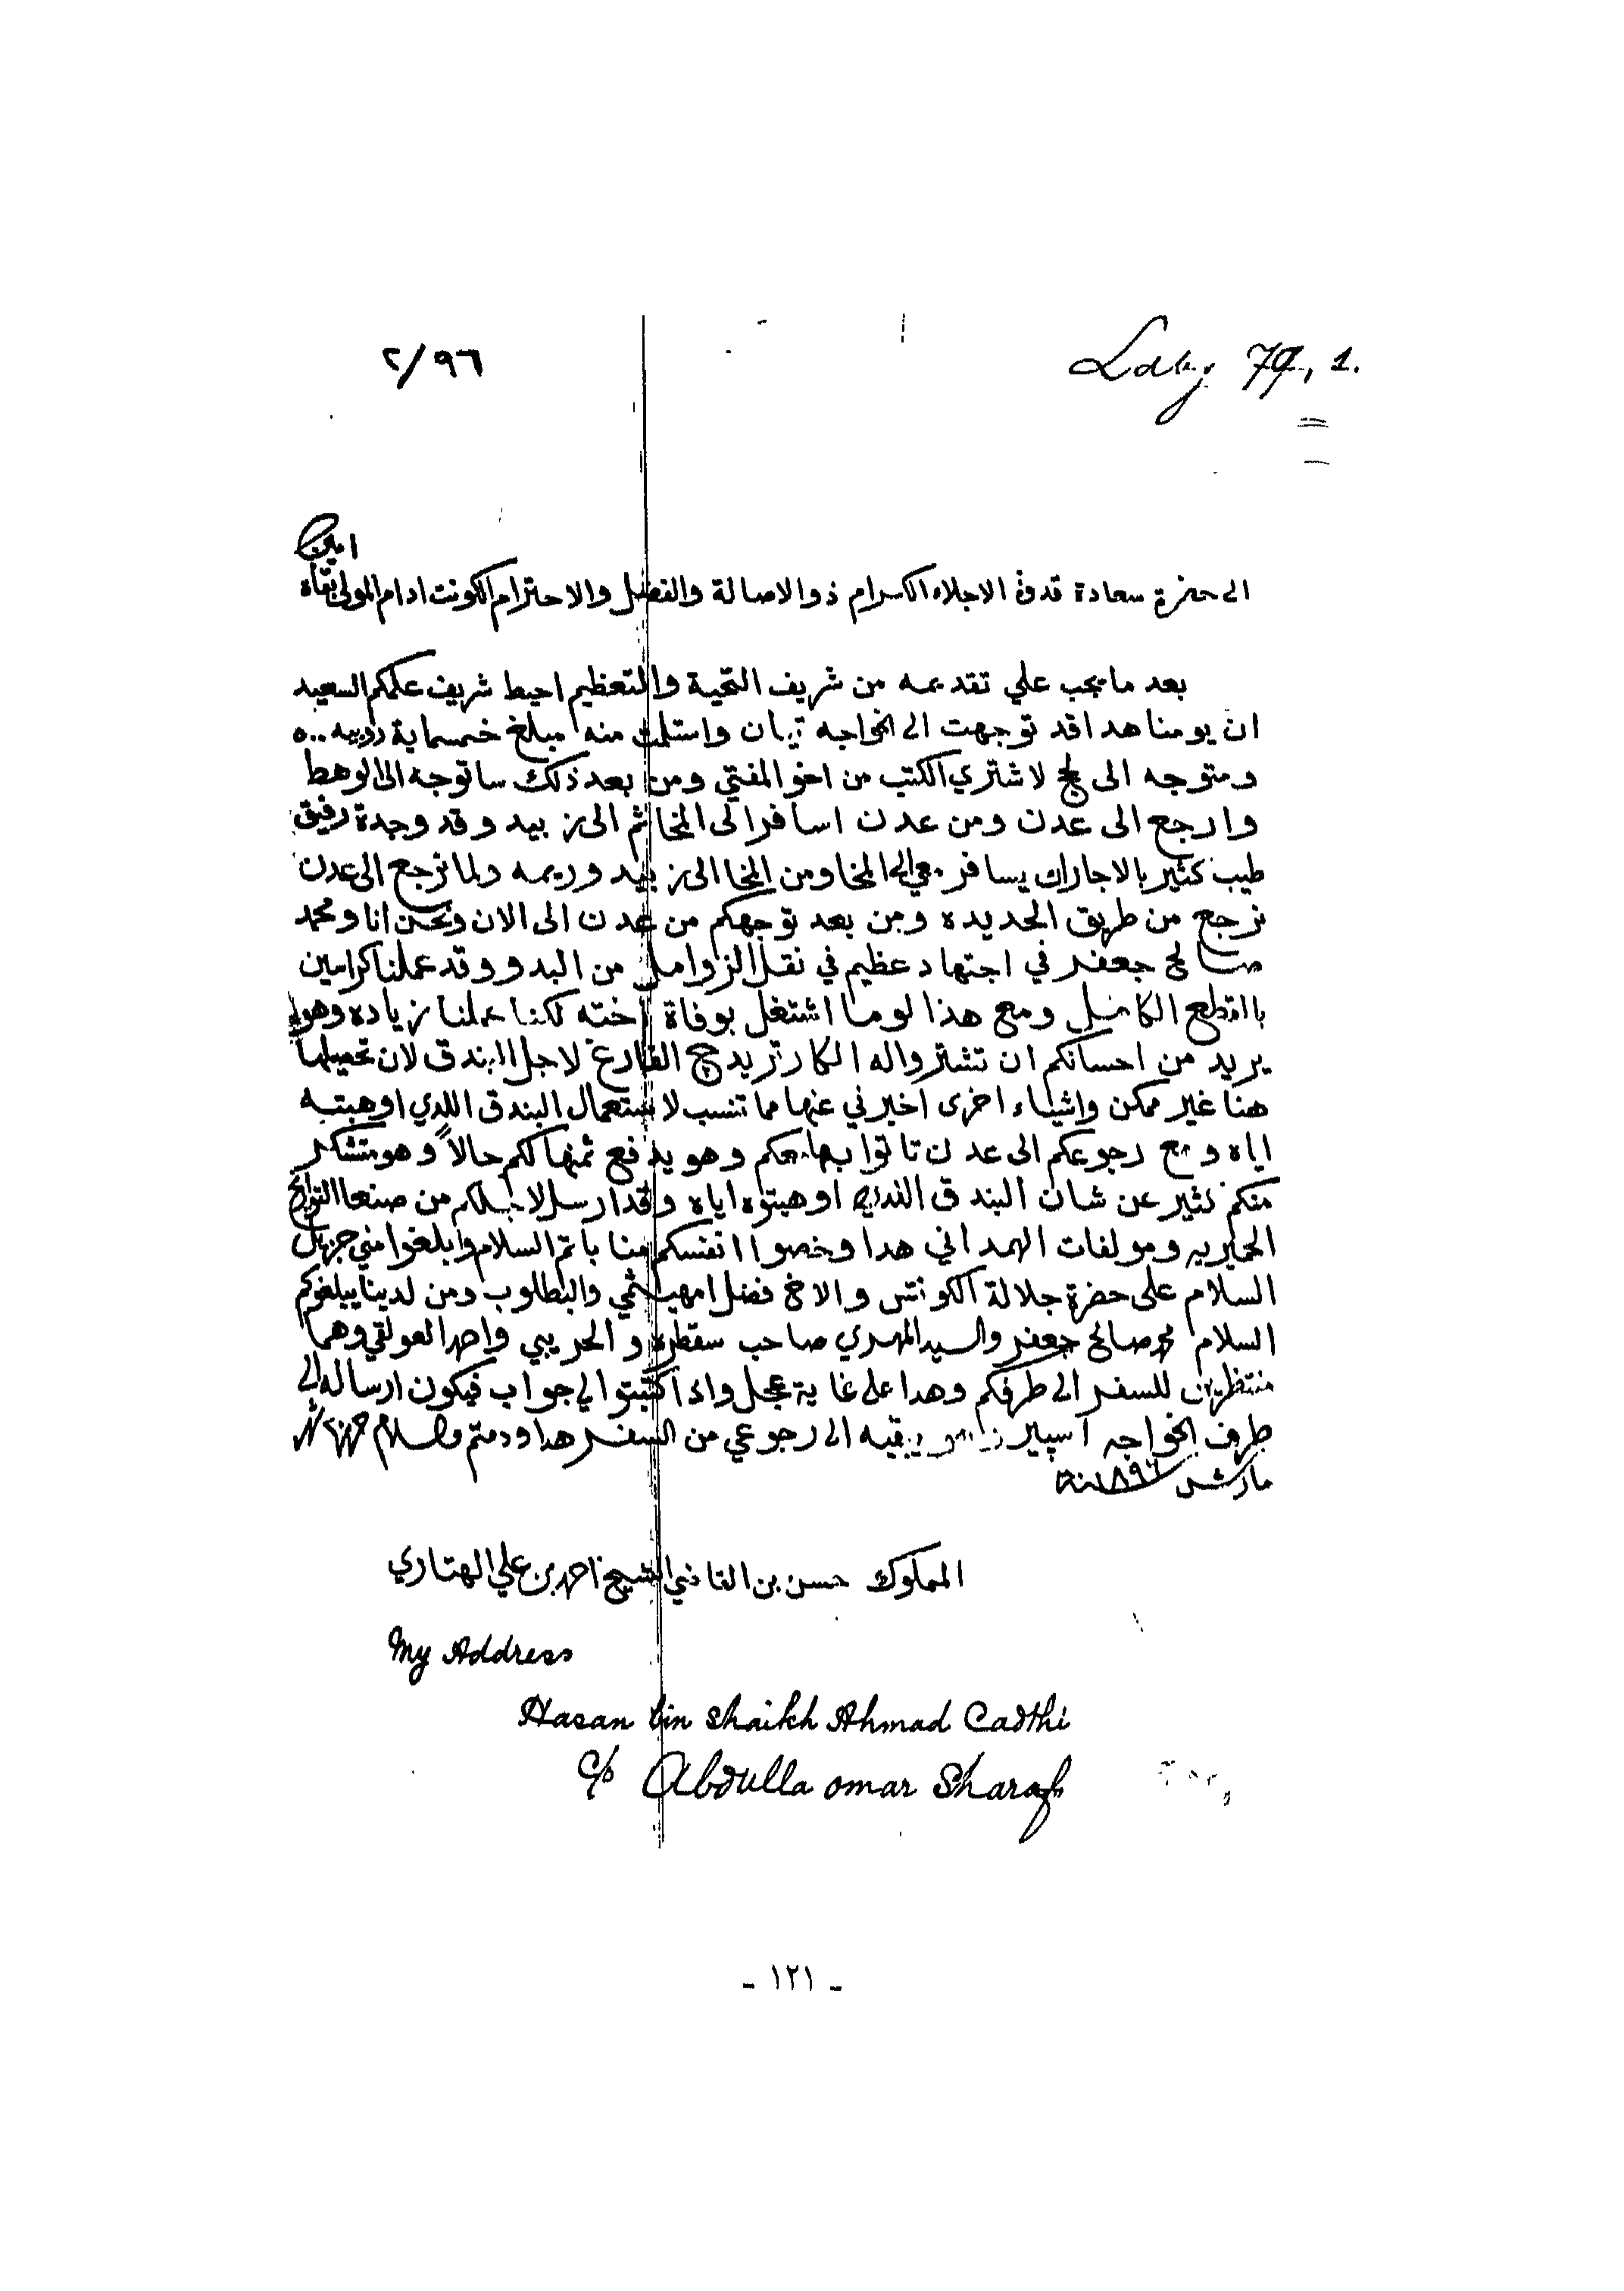 ٢/٩٦
Ldbg 79, 1.
امين
الى حضرة سعادة قدوة الاجلاء الكرام ذو الاصالة والفضل والاحترام الكونت ادام المولى بقاه
بعد ما يجب علي تقديمه من شريف التحية والتعظيم احيط شريف علمكم السعيد
ان يومنا هدا قد توجهت الى الخواجه تيان واستلمت منه مبلغ خمسماية روبيه ٥٠٠
ومتوجه الى لحج لاشتري الكتب من اخو المفتي ومن بعد ذلك ساتوجه الى الوهط
وارجع الى عدن ومن عدن اسافر الى المخا ثم الى زبيد وقد وجدة رفيق
طيب كثير بالاجارك يسافر معي الى المخا ومن المخا الى زبيد وريمه ولما نرجع الى عدن
نرجع من طريق الحديده ومن بعد توجهكم من عدن الى الان ونحن انا ومحمد
صالح جعفر في اجتهاد عظيم في نقل الزوامل من البدو وقد عملنا كراسين
باالقطع الكامل ومع هذا لوما اشتغل بوفاة اخته لكنا عملنا زياده وهو
يريد من احسانكم ان تشترواله الكارتريدج الفارغ لاجل البندق لان تحصيلها
هنا غير ممكن واشياء اخرى اخبرني عنها مما تنسب لاستعمال البندق اللدي اوهبته
اياه ومع رجوعكم الى عدن تاتوا بها معكم وهو يدفع ثمنها لكم حالاً وهو متشكر
منكم كثير عن شان البندق اللدي اوهبتوه اياه وقد ارسل لاجلكم من صنعا التواريخ
الحميريه ومولفات الهمداني هدا وخصوا انفسكم منا باتم السلام وابلغوا مني جزيل
السلام على حضرة جلالة الكونتس والاخ فضل امهيثمي والبطلوب ومن لدينا يبلغوكم
السلام محمد صالح جعفر والسيد المهري صاحب سقطره والحريبي واحمد العولقي وهما
منتظرين للسفر الى طرفكم وهدا على غاية عجل وادا كتبتوا لي جواب فيكون ارساله الى
طرف الخواجه اسپير يبقيه الى رجوعي من السفر هدا ودمتم والسلام
مارش ١٨٩٦ سنة
المملوك حسن بن القاضي الشيخ احمد بن علي الهتاري
My Address
Hasan bin Shaikh Ahmad Cadthi
c/o Abdulla omar Sharaf
- ١٢١ -